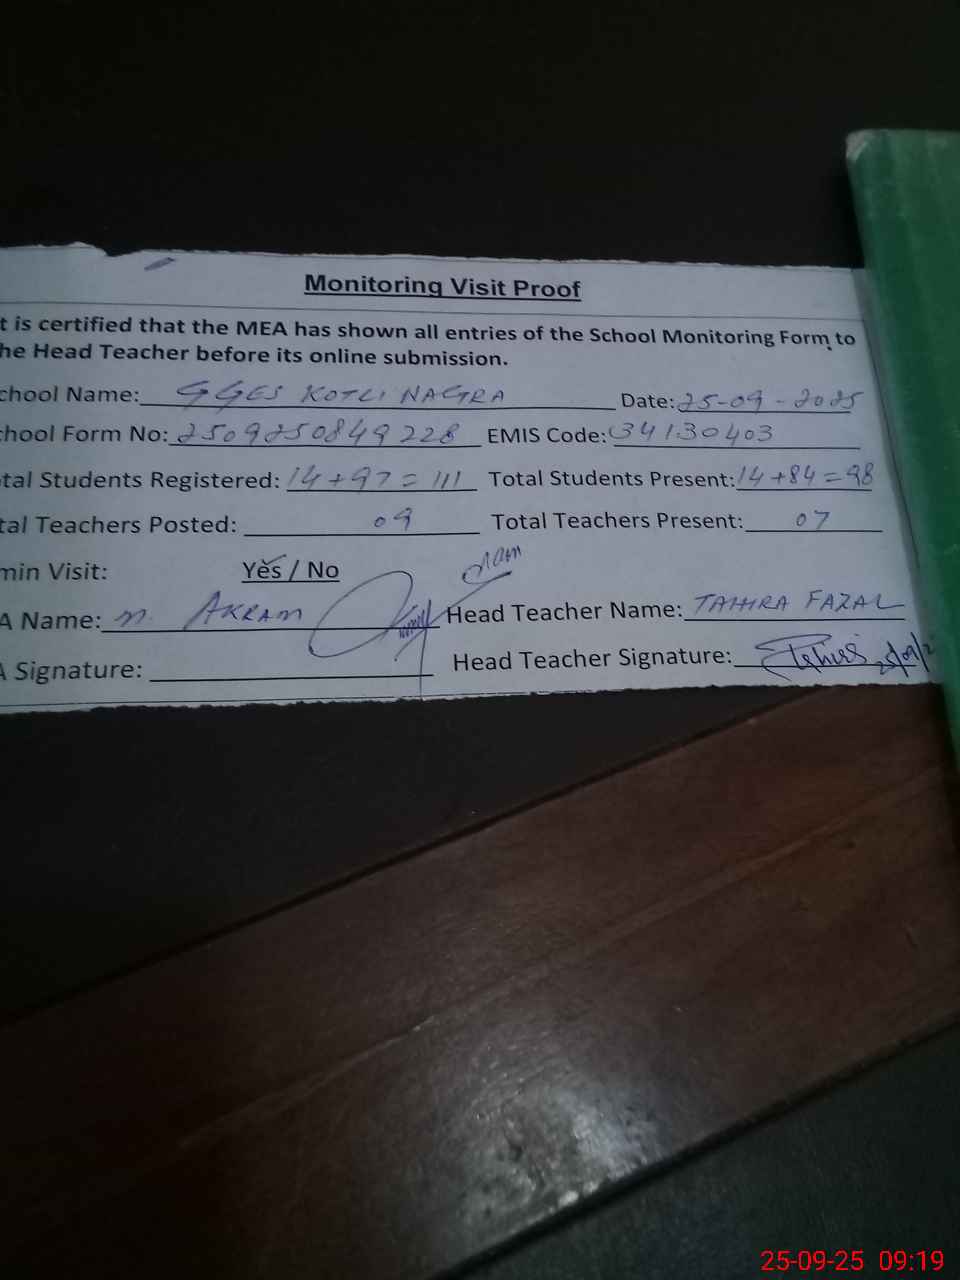 Monitoring Visit Proof
t is certified that the MEA has shown all entries of the School Monitoring Form to
he Head Teacher before its online submission.
chool Name: GGES KOTLI NAGRA Date: 25-09-2025
chool Form No: 2509250849228 EMIS Code: 34130403
tal Students Registered: 14+97=111 Total Students Present: 14+84=98
tal Teachers Posted: 09 Total Teachers Present: 07
min Visit: Yes / No
A Name: M. AKRAM Head Teacher Name: TAHIRA FAZAL
A Signature: Head Teacher Signature:
25-09-25 09:19